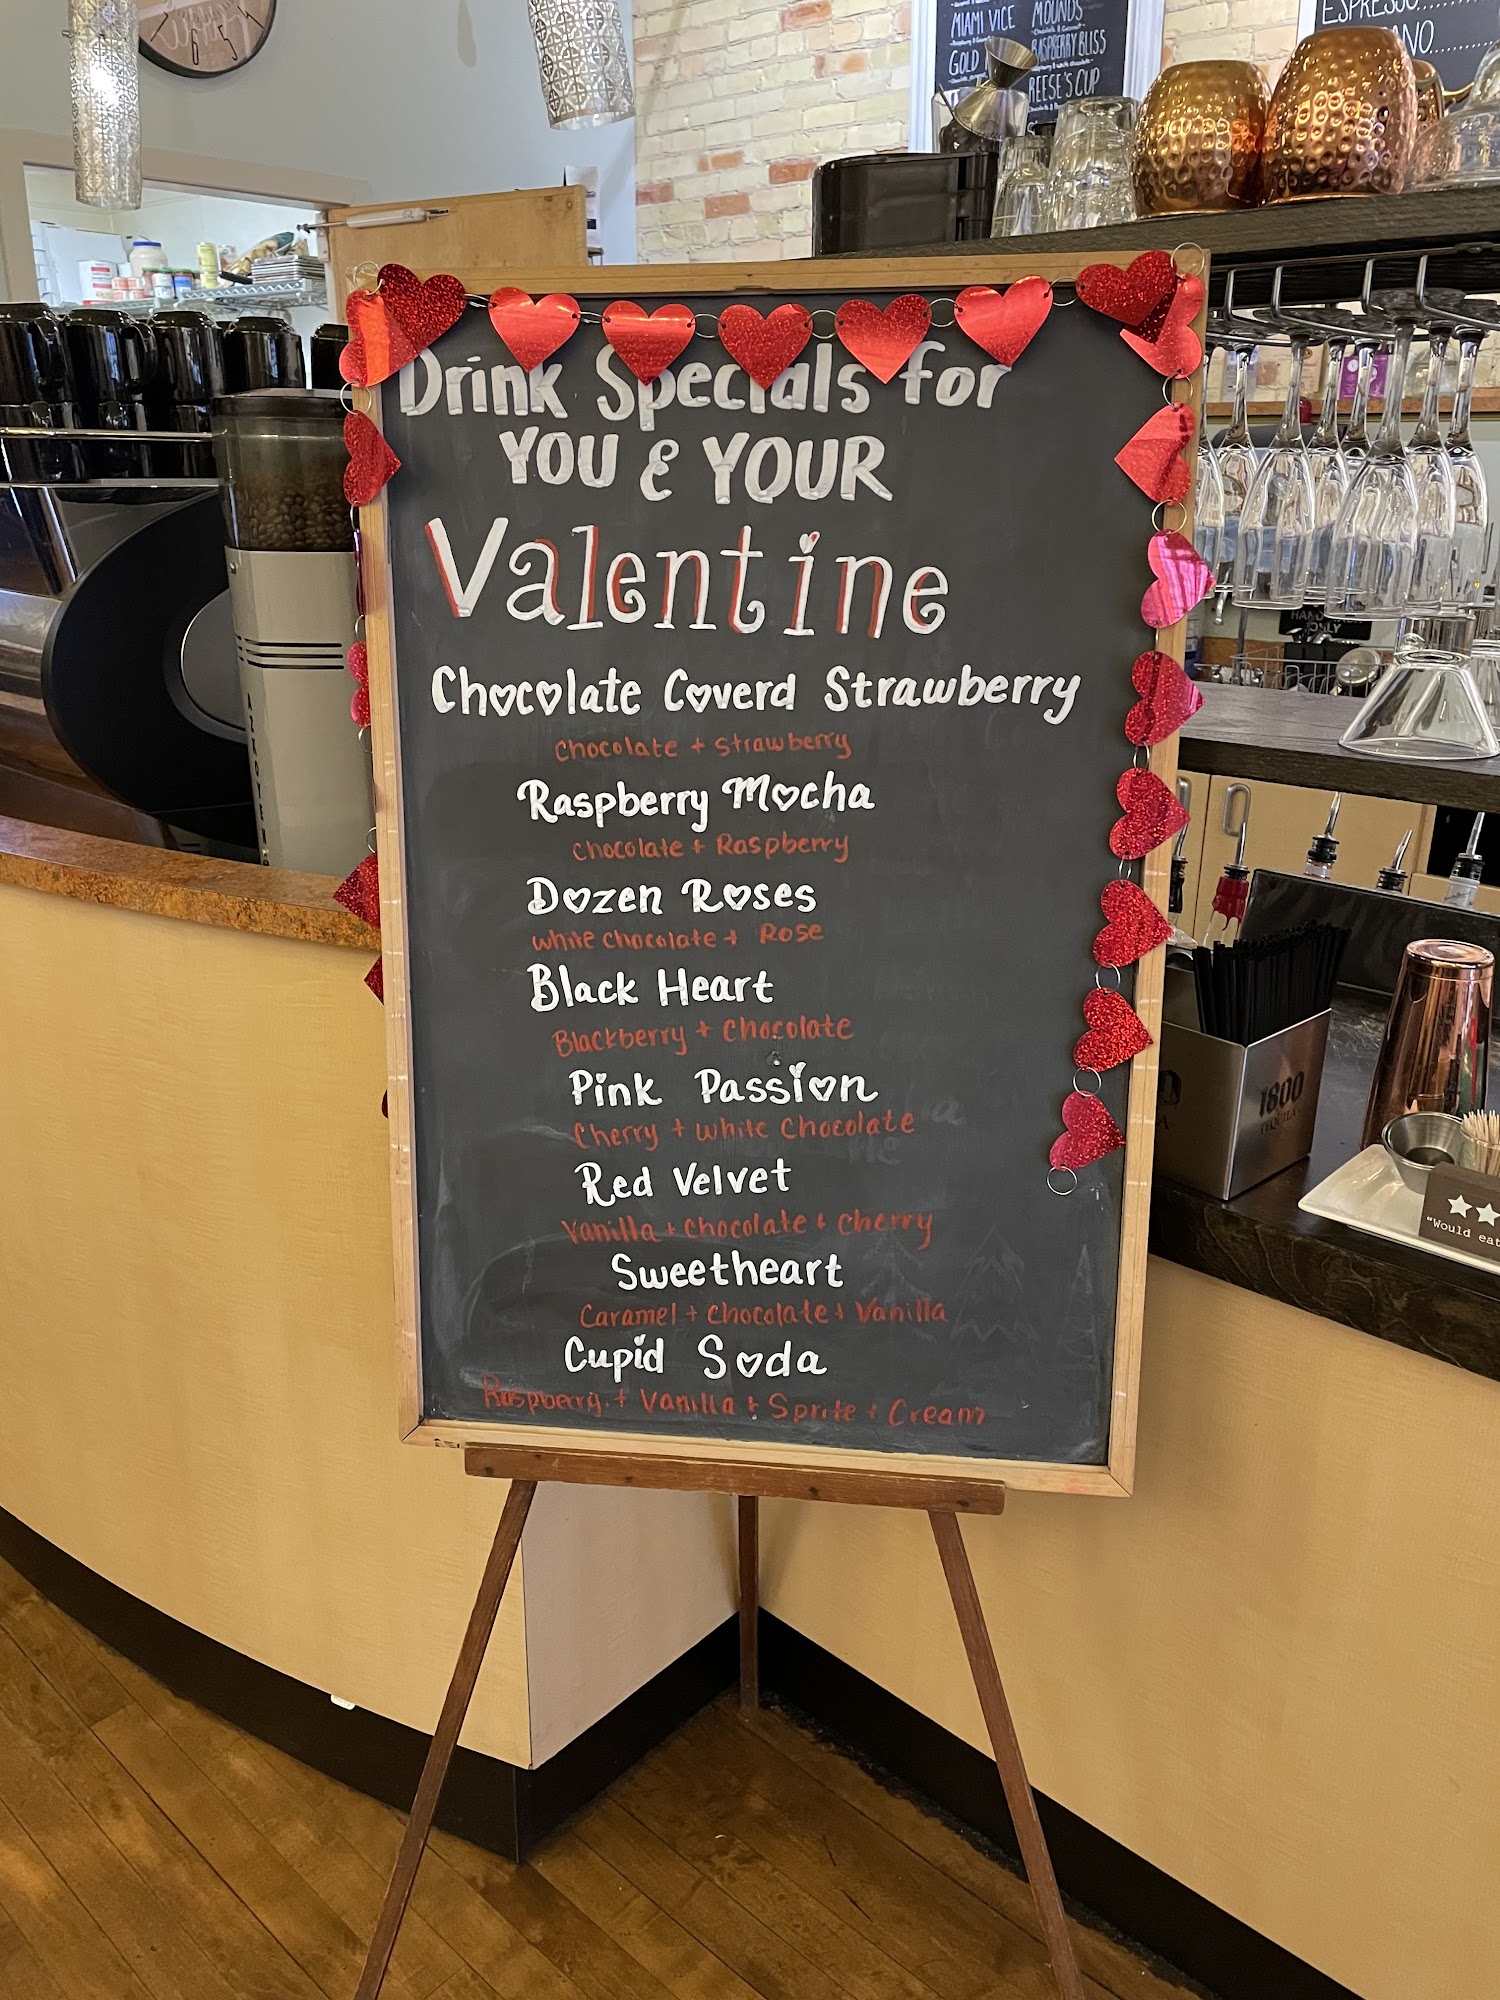 MIAMI VICE
GOLD
MOUNDS
RASPBERRY BLISS
REESE'S CUP
ESPRESSO
Drink Specials for
YOU & YOUR
Valentine
Chocolate Coverd Strawberry
Chocolate + Strawberry
Raspberry Mocha
Chocolate + Raspberry
Dozen Roses
White Chocolate + Rose
Black Heart
Blackberry + Chocolate
Pink Passion
Cherry + White Chocolate
Red Velvet
Vanilla + Chocolate + Cherry
Sweetheart
Caramel + Chocolate + Vanilla
Cupid Soda
Raspberry + Vanilla + Sprite + Cream
ONLY
1800
TEQUILA
"Would eat